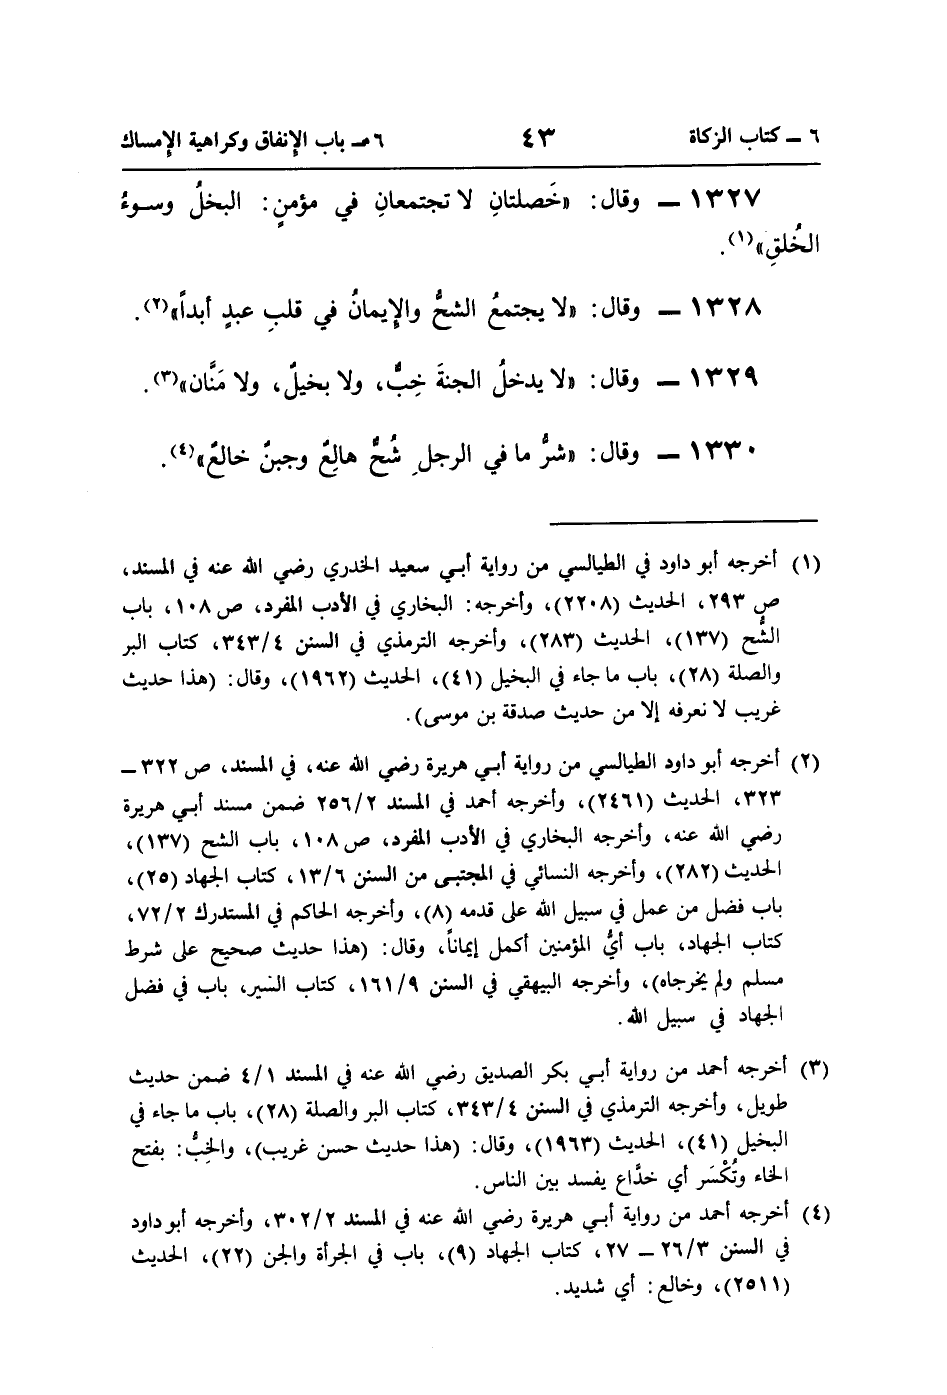 ٦ ــ كتاب الزكاة ٤٣ ٦ م ــ باب الإنفاق وكراهية الإمساك
١٣٢٧ ــ وقال: «خَصلتانِ لا تجتمعانِ في مؤمنٍ: البخلُ وسوءُ
الخُلقِ»(١).
١٣٢٨ ــ وقال: «لا يجتمعُ الشحُّ والإِيمانُ في قلبِ عبدٍ أبداً»(٢).
١٣٢٩ ــ وقال: «لا يدخلُ الجنةَ خِبٌّ، ولا بخيلٌ، ولا مَنَّان»(٣).
١٣٣٠ ــ وقال: «شرُّ ما في الرجلِ شُحٌّ هالِعٌ وجبنٌ خالعٌ»(٤).
(١) أخرجه أبو داود في الطيالسي من رواية أبي سعيد الخدري رضي الله عنه في المسند،
ص ٢٩٣، الحديث (٢٢٠٨)، وأخرجه: البخاري في الأدب المفرد، ص ١٠٨، باب
الشُّح (١٣٧)، الحديث (٢٨٣)، وأخرجه الترمذي في السنن ٣٤٣/٤، كتاب البر
والصلة (٢٨)، باب ما جاء في البخيل (٤١)، الحديث (١٩٦٢)، وقال: (هذا حديث
غريب لا نعرفه إلا من حديث صدقة بن موسى).
(٢) أخرجه أبو داود الطيالسي من رواية أبي هريرة رضي الله عنه، في المسند، ص ٣٢٢ ــ
٣٢٣، الحديث (٢٤٦١)، وأخرجه أحمد في المسند ٢٥٦/٢ ضمن مسند أبي هريرة
رضي الله عنه، وأخرجه البخاري في الأدب المفرد، ص ١٠٨، باب الشح (١٣٧)،
الحديث (٢٨٢)، وأخرجه النسائي في المجتبى من السنن ١٣/٦، كتاب الجهاد (٢٥)،
باب فضل من عمل في سبيل الله على قدمه (٨)، وأخرجه الحاكم في المستدرك ٧٢/٢،
كتاب الجهاد، باب أيُّ المؤمنين أكمل إيماناً، وقال: (هذا حديث صحيح على شرط
مسلم ولم يخرجاه)، وأخرجه البيهقي في السنن ١٦١/٩، كتاب السّير، باب في فضل
الجهاد في سبيل الله.
(٣) أخرجه أحمد من رواية أبي بكر الصديق رضي الله عنه في المسند ٤/١ ضمن حديث
طويل، وأخرجه الترمذي في السنن ٣٤٣/٤، كتاب البر والصلة (٢٨)، باب ما جاء في
البخيل (٤١)، الحديث (١٩٦٣)، وقال: (هذا حديث حسن غريب)، والخِبُّ: بفتح
الخاء وتُكْسَر أي خدَّاع يفسد بين الناس.
(٤) أخرجه أحمد من رواية أبي هريرة رضي الله عنه في المسند ٣٠٢/٢، وأخرجه أبو داود
في السنن ٢٦/٣ ــ ٢٧، كتاب الجهاد (٩)، باب في الجرأة والجن (٢٢)، الحديث
(٢٥١١)، وخالع: أي شديد.